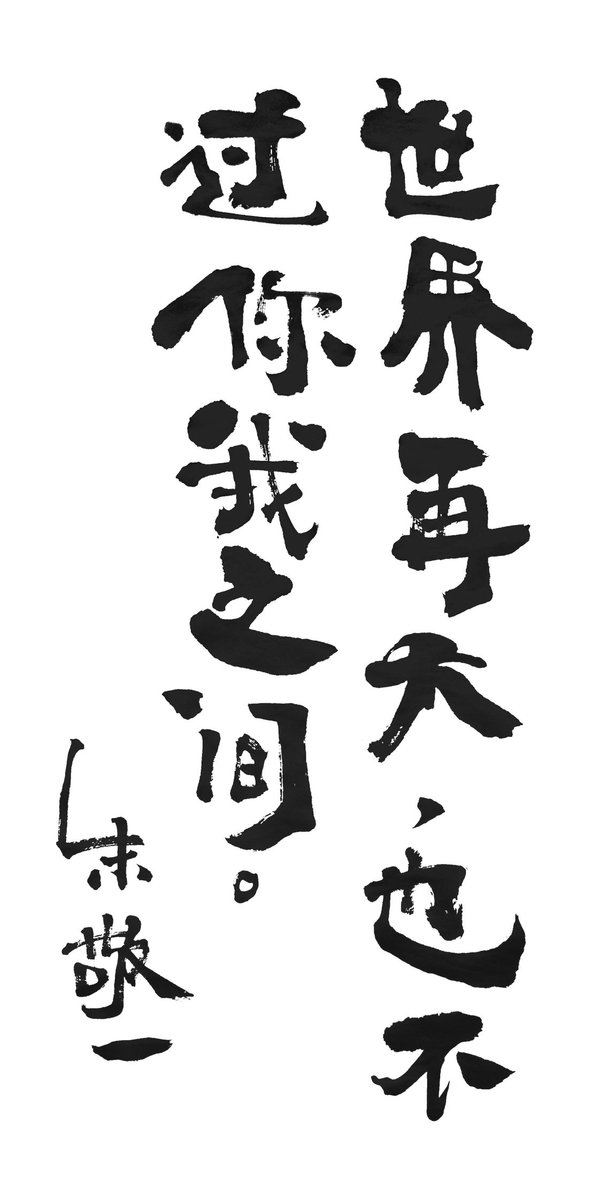 世界再大，也不
过你我之间。
朱敬一